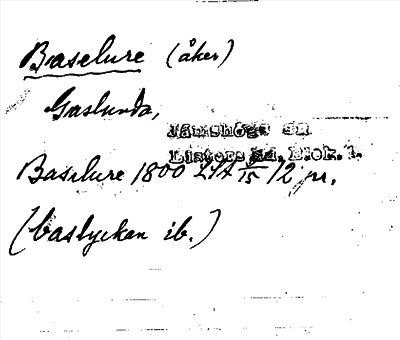 Baselure (åker)
Gaslunda,
Jämshögs sn
Listers hd, Blek. l.
Baselure 1800 LSA 15/12 nr.
(baslyckan ib.)